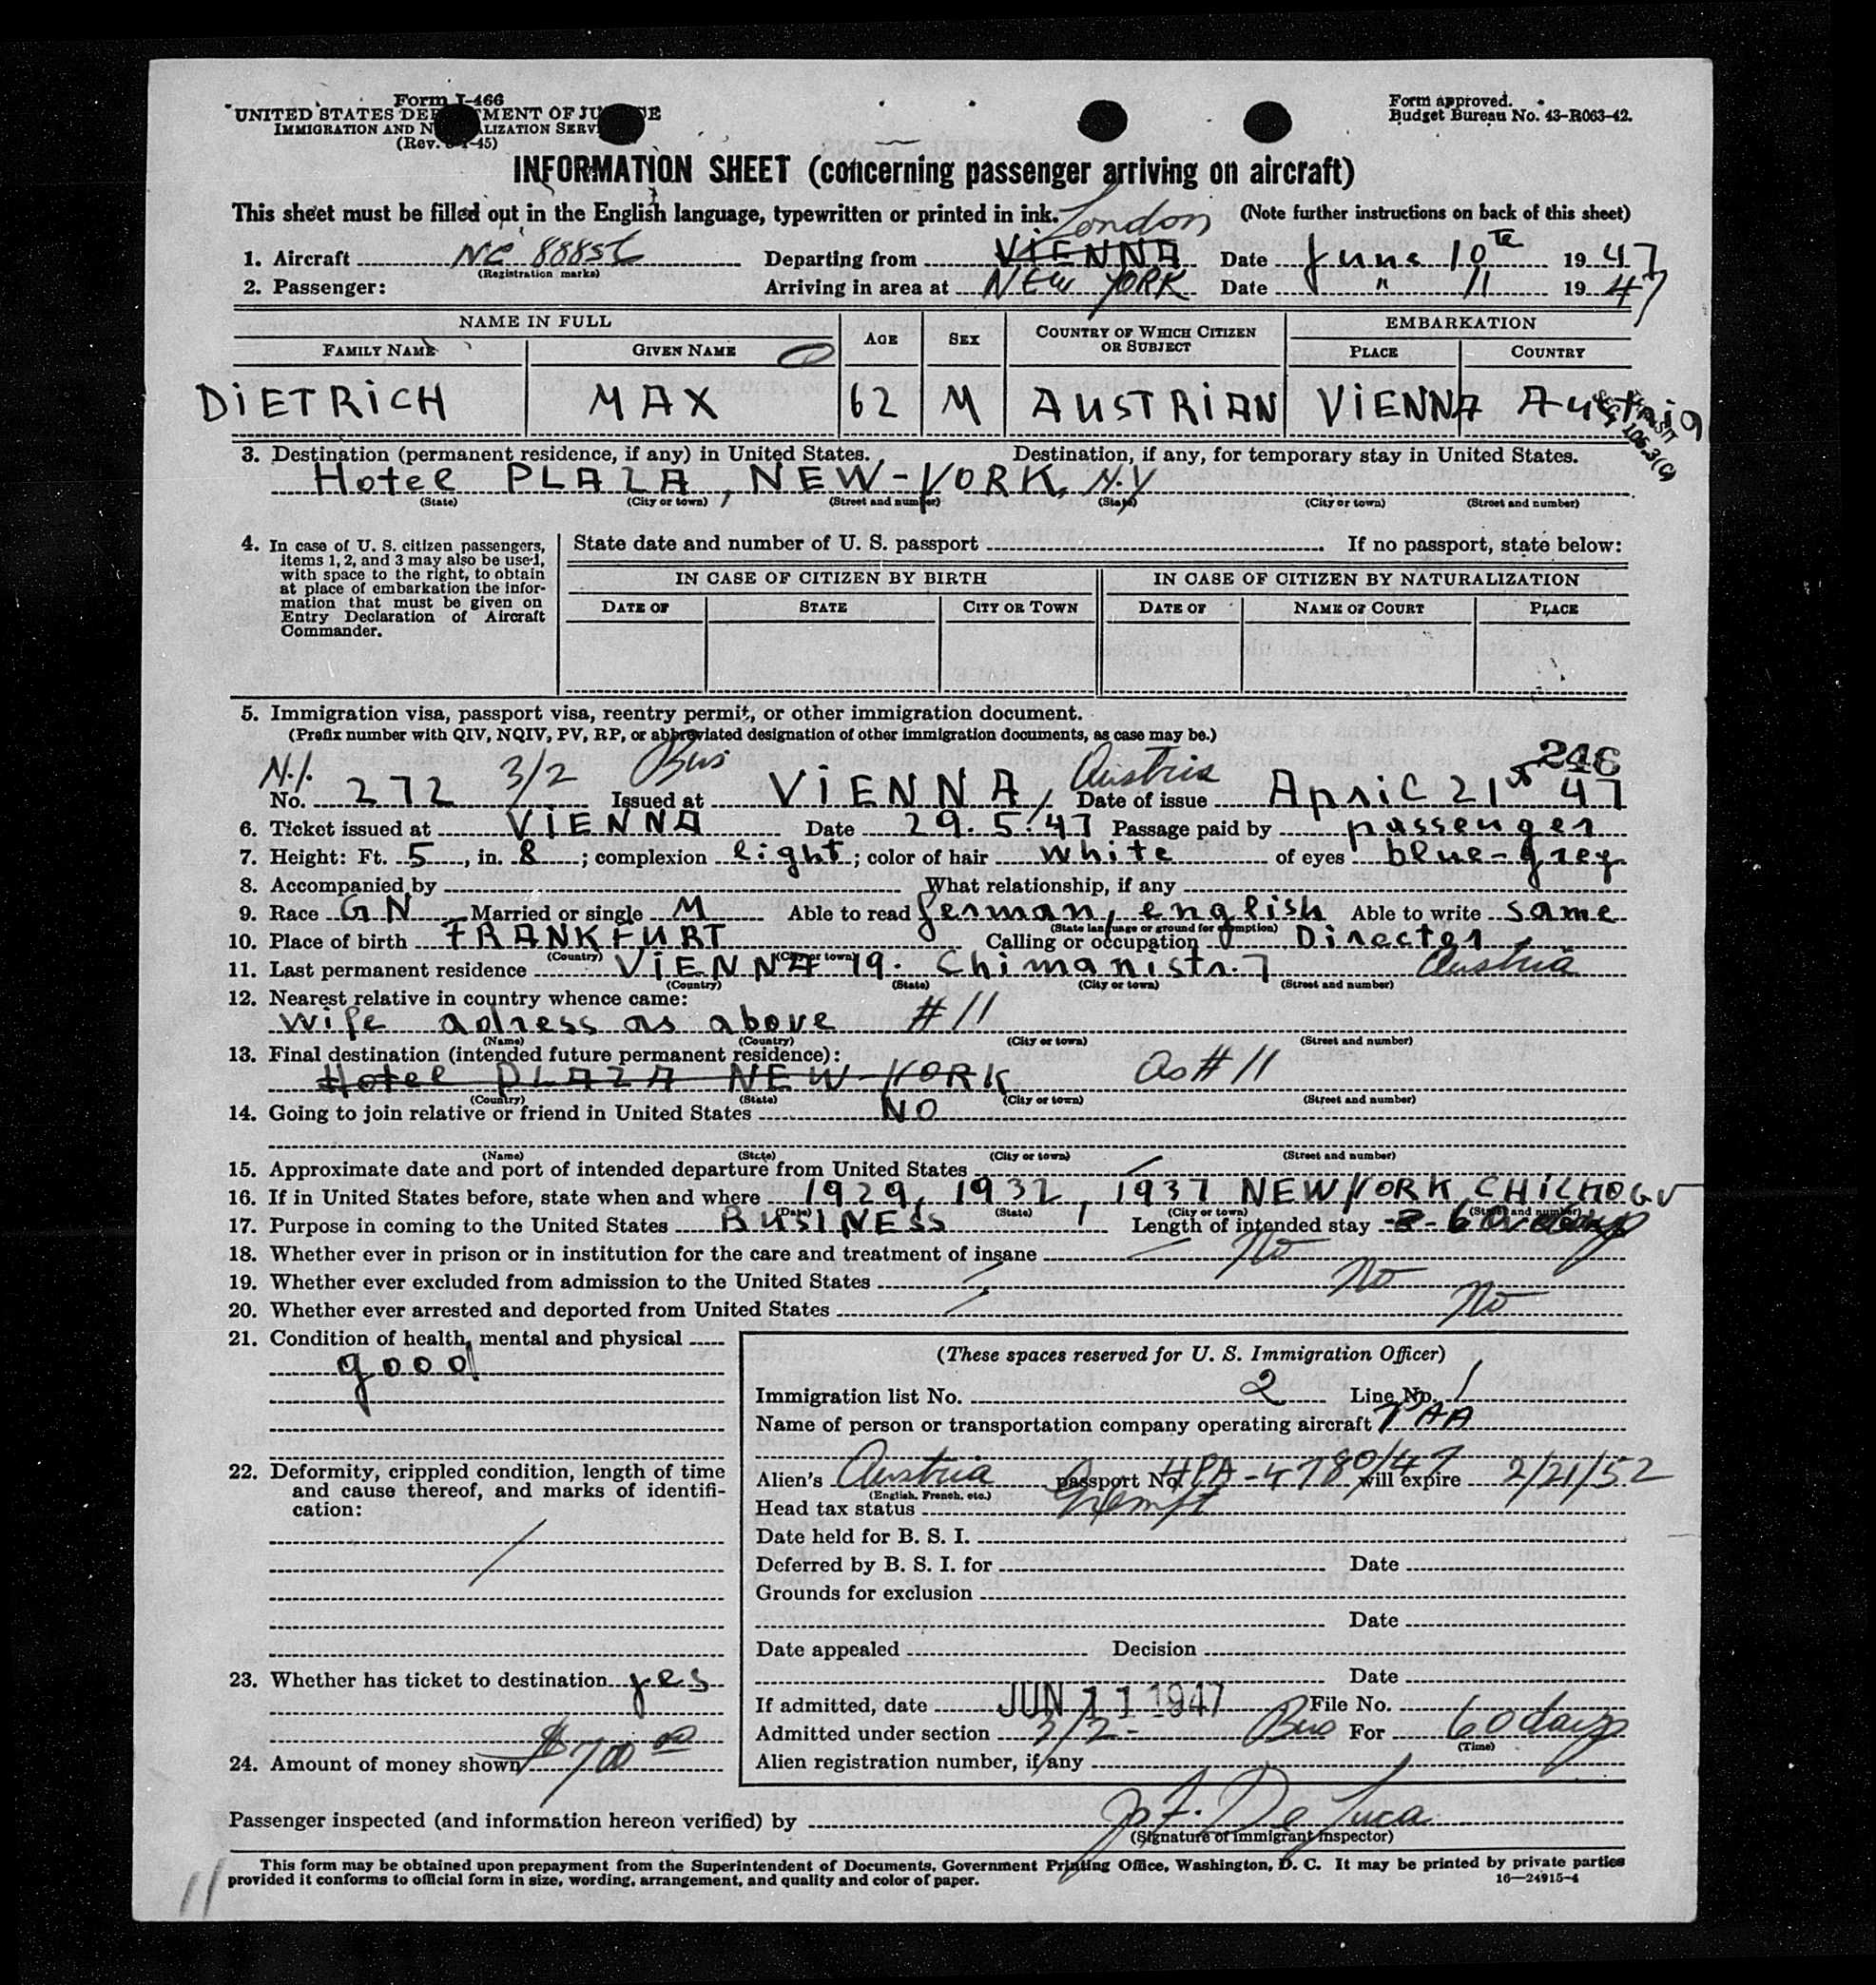 Form I-466
UNITED STATES DEPARTMENT OF JUSTICE
IMMIGRATION AND NATURALIZATION SERVICE
(Rev. -45)
Form approved.
Budget Bureau No. 43-R063-42.
INFORMATION SHEET (concerning passenger arriving on aircraft)
This sheet must be filled out in the English language, typewritten or printed in ink. (Note further instructions on back of this sheet)
London
1. Aircraft NC 88856 Departing from VIENNA Date June 10th 1947
(Registration marks)
2. Passenger: Arriving in area at NEW YORK Date " 11 1947
NAME IN FULL AGE SEX COUNTRY OF WHICH CITIZEN OR SUBJECT EMBARKATION
FAMILY NAME GIVEN NAME PLACE COUNTRY
DIETRICH MAX 62 M AUSTRIAN VIENNA Austria
3. Destination (permanent residence, if any) in United States. Destination, if any, for temporary stay in United States.
Hotel PLAZA, NEW-YORK, N.Y
(State) (City or town) (Street and number) (State) (City or town) (Street and number)
4. In case of U. S. citizen passengers, items 1, 2, and 3 may also be used, with space to the right, to obtain at place of embarkation the information that must be given on Entry Declaration of Aircraft Commander.
State date and number of U. S. passport If no passport, state below:
IN CASE OF CITIZEN BY BIRTH IN CASE OF CITIZEN BY NATURALIZATION
DATE OF STATE CITY OR TOWN DATE OF NAME OF COURT PLACE
5. Immigration visa, passport visa, reentry permit, or other immigration document.
(Prefix number with QIV, NQIV, PV, RP, or abbreviated designation of other immigration documents, as case may be.)
246
No. 272 3/2 Bus Issued at VIENNA, Austria Date of issue April 21st 47
6. Ticket issued at VIENNA Date 29.5.47 Passage paid by passenger
7. Height: Ft. 5, in. 8; complexion light; color of hair white of eyes blue-grey
8. Accompanied by What relationship, if any
9. Race GN Married or single M Able to read german, english Able to write same
(State language or ground for exemption)
10. Place of birth FRANKFURT Calling or occupation Director
(Country) (City or town)
11. Last permanent residence VIENNA 19. Chimanistr. 7 Austria
(Country) (State) (City or town) (Street and number)
12. Nearest relative in country whence came:
wife adress as above #11
(Name) (Country) (City or town) (Street and number)
13. Final destination (intended future permanent residence):
Hotel PLAZA NEW-YORK As #11
(Country) (State) (City or town) (Street and number)
14. Going to join relative or friend in United States NO
(Name) (State) (City or town) (Street and number)
15. Approximate date and port of intended departure from United States
16. If in United States before, state when and where 1929, 1932, 1937 NEW YORK, CHICAOGO
(Date) (State) (City or town) (Street and number)
17. Purpose in coming to the United States BUSINESS Length of intended stay 60 days
18. Whether ever in prison or in institution for the care and treatment of insane No
19. Whether ever excluded from admission to the United States No
20. Whether ever arrested and deported from United States No
21. Condition of health, mental and physical
good
22. Deformity, crippled condition, length of time and cause thereof, and marks of identification:
23. Whether has ticket to destination yes
24. Amount of money shown $700 00
(These spaces reserved for U. S. Immigration Officer)
Immigration list No. 2 Line No. 1
Name of person or transportation company operating aircraft PAA
Alien's Austria passport No. HPA-4780/47 will expire 2/21/52
(English, French, etc.)
Head tax status Exempt
Date held for B. S. I.
Deferred by B. S. I. for Date
Grounds for exclusion
Date
Date appealed Decision
Date
If admitted, date JUN 11 1947 File No.
Admitted under section 3/2- Bus For 60 days
(Time)
Alien registration number, if any
Passenger inspected (and information hereon verified) by De Luca
(Signature of immigrant inspector)
This form may be obtained upon prepayment from the Superintendent of Documents, Government Printing Office, Washington, D. C. It may be printed by private parties
provided it conforms to official form in size, wording, arrangement, and quality and color of paper.
16—24915-4
11